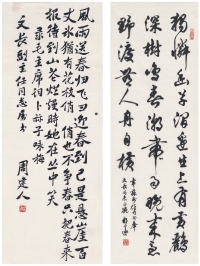 独怜幽草涧边生上有黄鹂
深树鸣春潮带雨晚来急
野渡无人舟自横
风雨送春归飞雪迎春到已是悬崖百
丈冰犹有花枝俏俏也不争春只把春来
报待到山花烂漫时她在丛中笑
录毛主席词卜算子咏梅
文长副主任同志属书
周建人